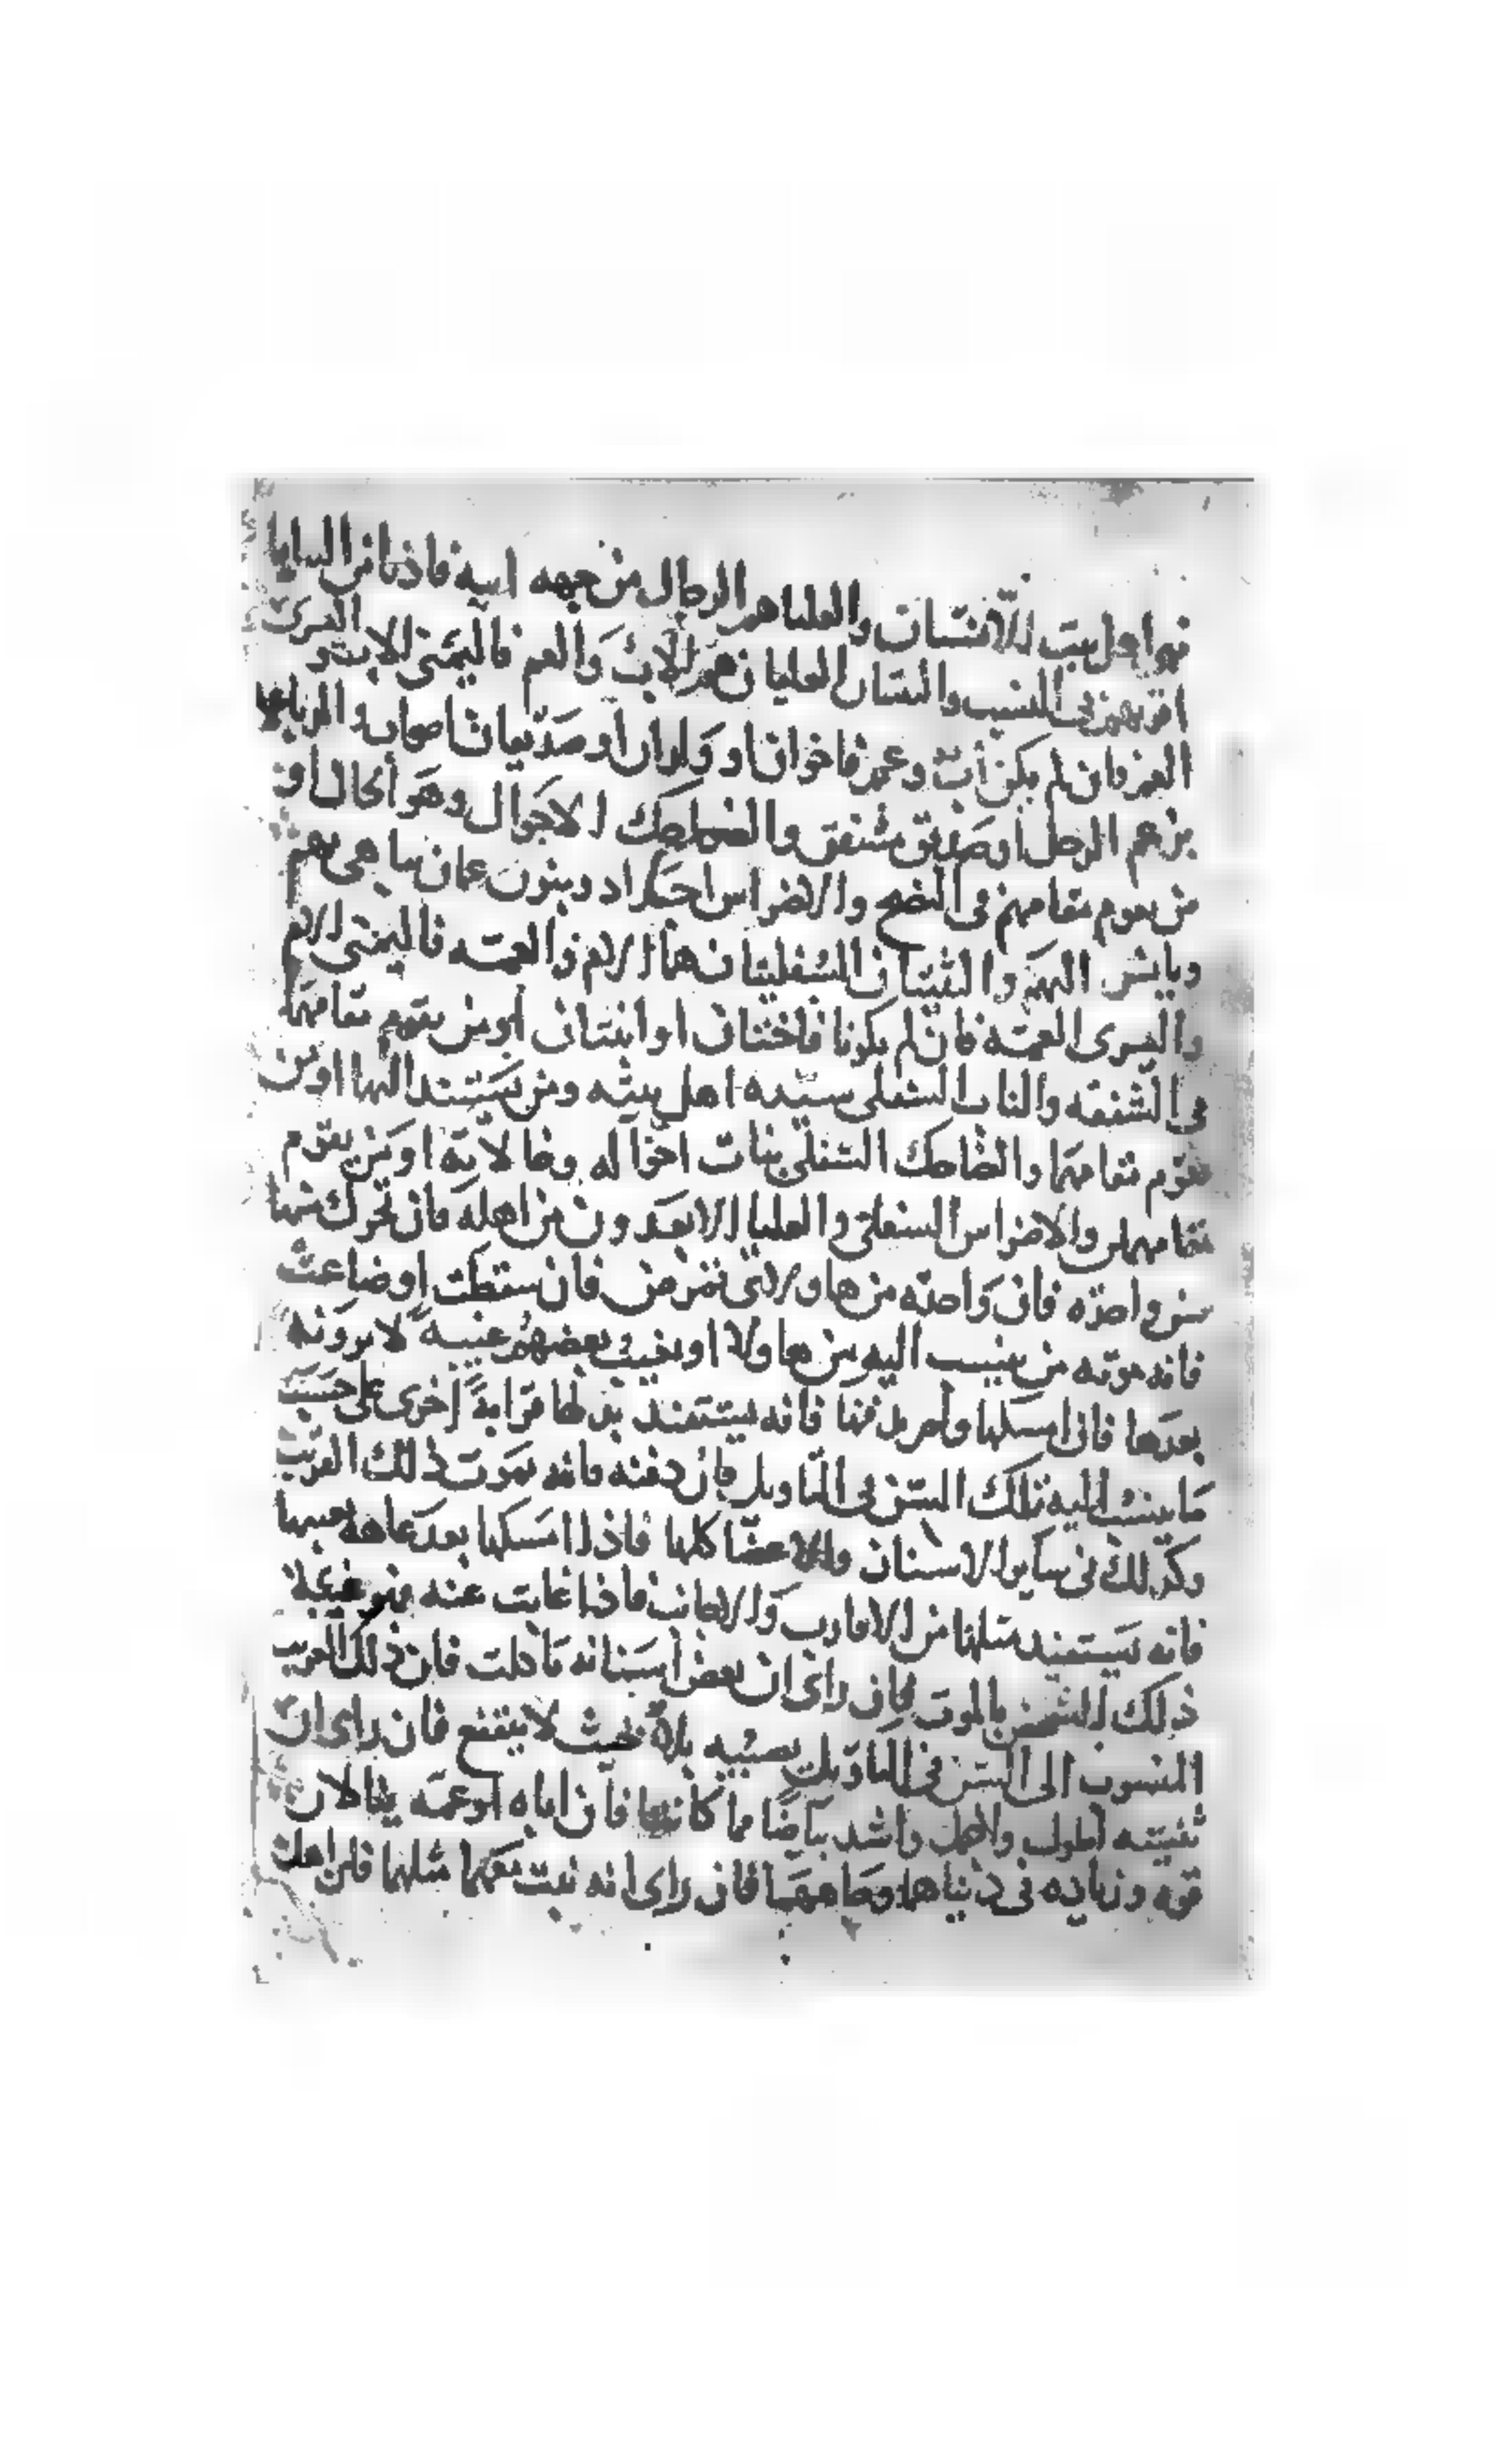 فهو اهل بيت للانسان والعليا هم الرجال من جهه ابيه فادنا من الثنايا
اقربهم في النسب والثنيتان العلياتان هما للاب والعم فاليمنى الاب واليسرى
العم فان لم يكن أب وعم فاخوان او ولدان او صديقان ناصحان والرباعيا
بن عم الرجل او صديق شفق والضواحك الاخوال وهو الخال او
من يقوم مقامهم في النصح والاضراس اجداد وبنون
والثنيتان السفليتان هما الام والعمه فاليمنى الام
واليسرى العمه فان لم يكونا فاختان او ابنتان او من يقوم مقامهما
في الشفقه والناب السفلى سيده اهل بيته ومن يستند اليها او من
يقوم مقامها والضاحك السفلى بنات اخواله وخالاته او من يقوم
مقامهن والاضراس السفلى والعليا الابعدون من اهله فان تحرك منها
سن واحده فان واحده من هاولاى تمرض فان سقطت او ضاعت
فانه موته من ينسب اليه من هاولا او يغيب بعضهم غيبه لا يرونه
بعدها فان امسكها ولم يدفنها فانه يستفيد بدلها قرابة اخرى على حسب
ما ينسب اليه تلك السن في التاويل فان دفنه فانه يموت ذلك القريب
وكذلك في ساير الاسنان والاعضا كلها فاذا امسكها بعد
فانه يستفيد مثلها من الاقارب والاجانب فاذا غابت عنه فهو
ذلك الشخص بالموت فان راى ان بعض اسنانه تاكلت فان ذلك القريب
المنسوب الى السن في التاويل يصيبه بلا لا ينتفع فان راى ان
ثنيته اطول واجمل واشد بياضا مما كانتا فان اباه او عمه ينالان
قوه وزياده في دنياهما وجاههما فان راى انه نبت معهما مثلهما فان اهل